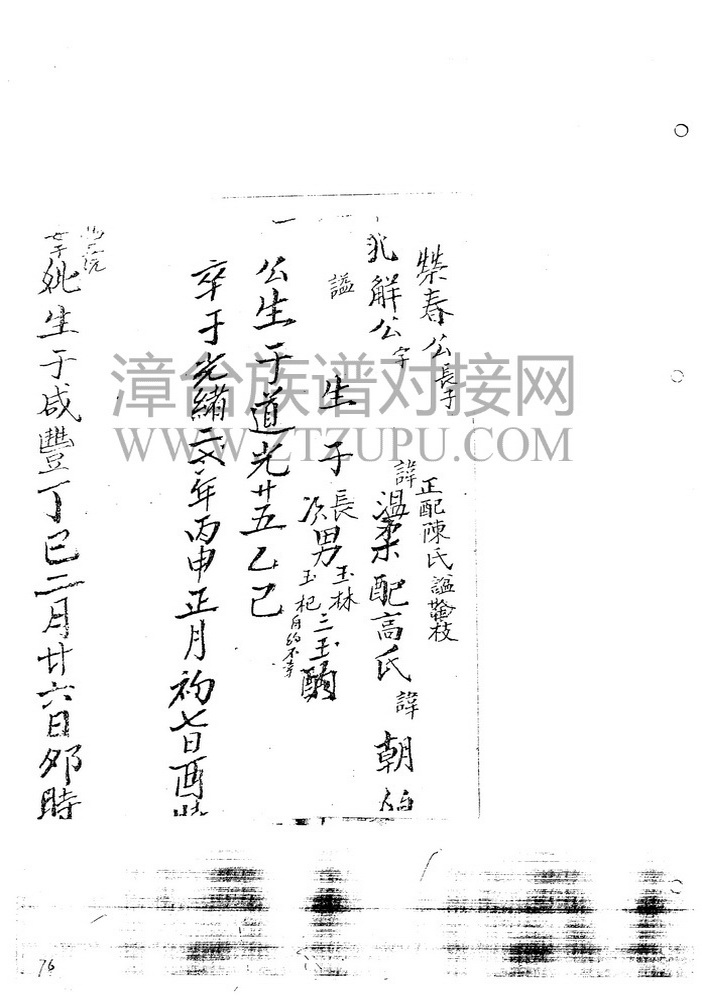 榮春公長子
正配陳氏諡
枝
解公字
諱溫柔配高氏諱朝
諡
生子長男玉林
次玉杞 三玉
公生于道光廿五乙己
卒于光緒 年丙申正月初七日酉時
妣生于咸豐丁巳二月廿六日卯時
漳台族谱对接网
WWW.ZTZUPU.COM
76